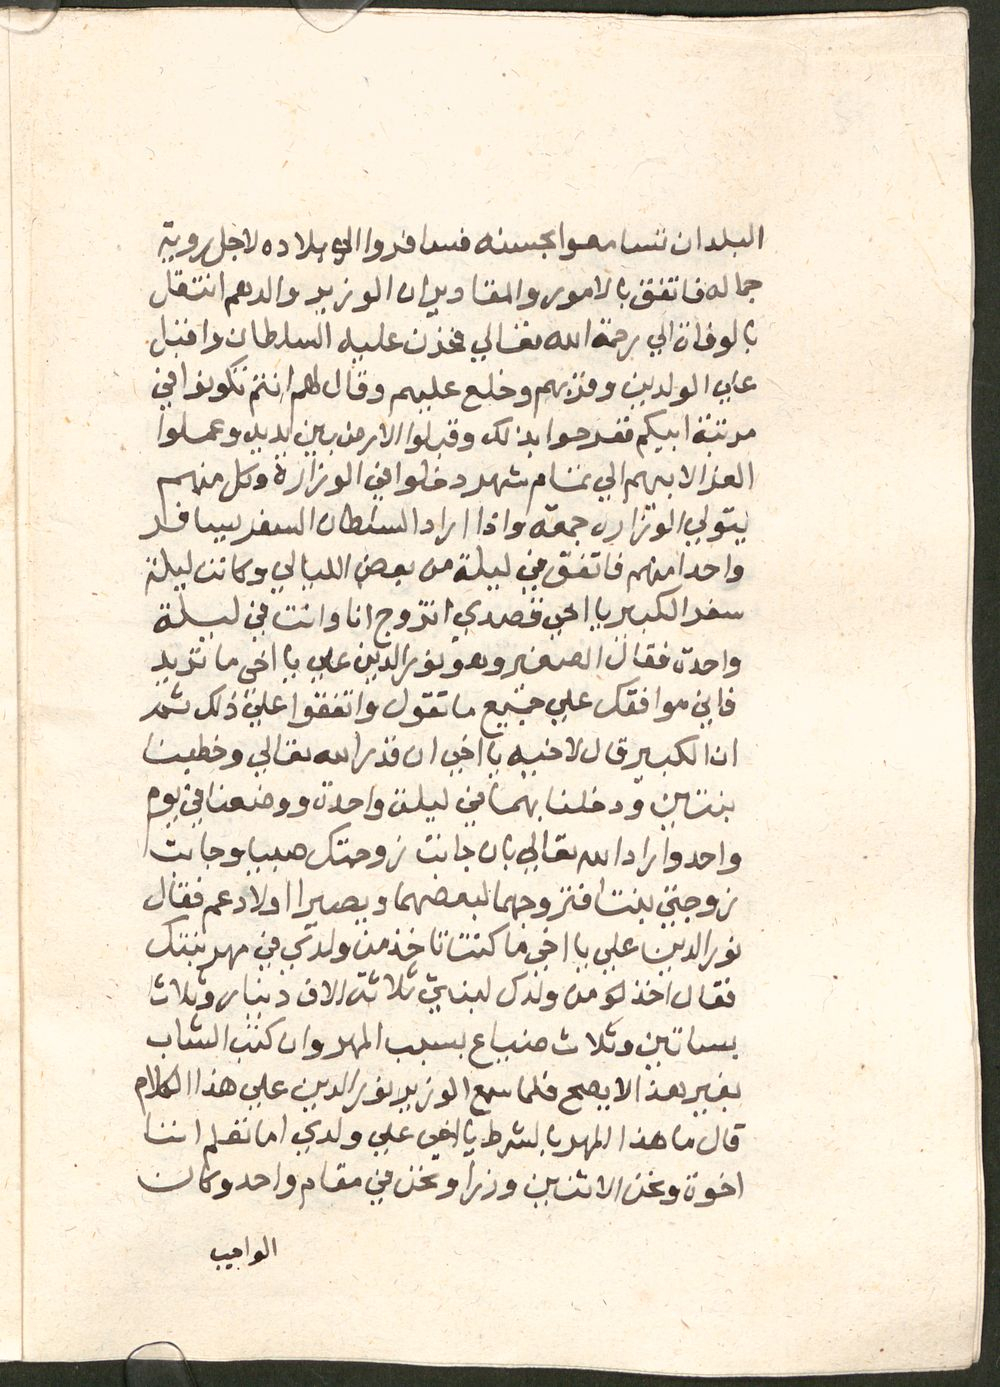 البلدان تسامعوا بحسنه فسافروا الي بلاده لاجل روية
جماله فاتفق بالامور والمقادير ان الوزير والدهم انتقل
بالوفاة الي رحمة الله تعالي فحزن عليه السلطان واقبل
علي الولدين وقربهم وخلع عليهم وقال لهم انتم تكونوا في
مرتبة ابيكم ففرحوا بذلك وقبلوا الارض بين يديه وعملوا
العزا لابيهم الي تمام شهر دخلوا في الوزارة وكل منهم
يتولي الوزاره جمعه واذا اراد السلطان السفر يسافر
واحدا منهم فاتفق في ليلة من بعض الليالي وكانت ليلة
سفر الكبير يا اخي قصدي اتزوج انا وانت في ليلة
واحدة فقال الصغير وهو نور الدين علي يا اخي ما تريد
فاني موافقك علي جميع ما تقول واتفقوا علي ذلك ثم
ان الكبير قال لاخيه يا اخي ان قدر الله تعالي وخطبنا
بنتين ودخلنا بهما في ليلة واحدة ووضعنا في يوم
واحد واراد الله تعالي بان جائت زوجتك صبيا وجائت
زوجتي بنتا فنزوجهما لبعضهما ويصيرا اولاد عم فقال
نور الدين علي يا اخي ما كنت تاخذ من ولدي في مهر بنتك
فقال اخذ من ولدك لبنتي ثلاثة الاف دينار وثلاث
بساتين وثلاث ضياع بسبب المهر وان كتب الشاب
بغير هذا لا يصح فلما سمع الوزير نور الدين علي هذا الكلام
قال ما هذا المهر بالشرط يا اخي علي ولدي اما تعلم اننا
اخوة ونحن الاثنين وزرا ونحن في مقام واحد وكان
الواجب